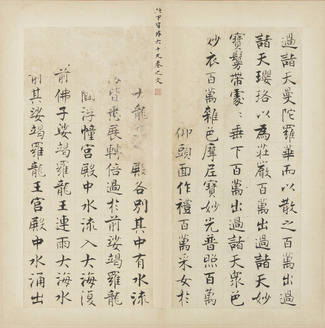 過諸天曼陀羅華而以散之百萬出過
諸天瓔珞以為莊嚴百萬出過諸天妙
寶鬘帶 垂下百萬出過諸天眾色
妙衣百萬雜色摩尼寶妙光普照百萬
仰頭面作禮百萬采女於
六十五卷之文
大龍 殿各別其中有水流
皆悉展轉倍過於前娑竭羅龍
閻浮幢宮殿中水流入大海復
前佛子娑竭羅龍王連雨大海水
別其娑竭羅龍王宮殿中水涌出